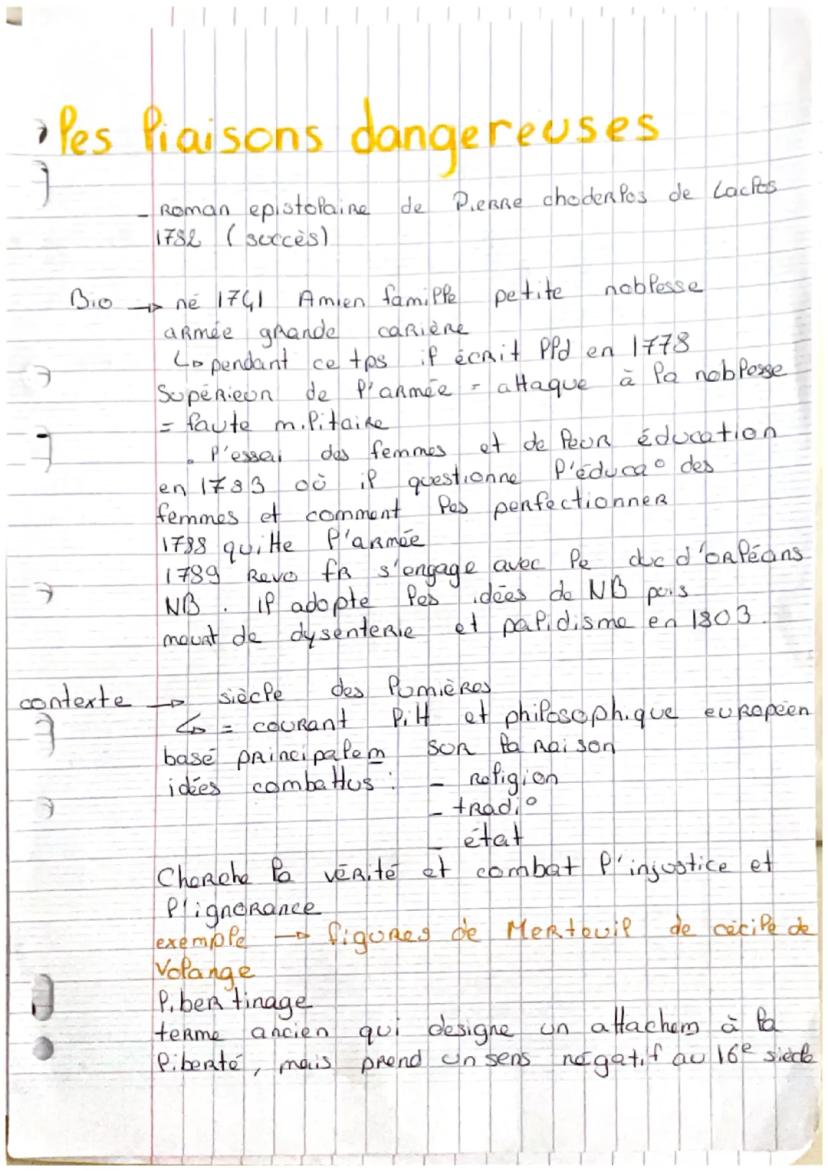 les liaisons dangereuses
- Roman epistolaire de Pierre choderlos de Laclos
1782 (succès)
Bio → né 1741 Amien famille petite noblesse
armée grande carière
↳ pendant ce tps il écrit lld en 1778
Supérieur de l'armée = attaque à la noblesse
= faute militaire
. l'essai des femmes et de leur éducation
en 1783 où il questionne l'éduca° des
femmes et comment les perfectionner
1788 quitte l'armée
1789 Revo fR s'engage avec le duc d'orléans
NB . il adopte les idées de NB puis
meurt de dysenterie et palidisme en 1803.
contexte → siècle des lumières
↳ = courant litt et philosophique européen
basé principalem sur la raison
idées combattus : - religion
- tradi°
- état
Cherche la vérité et combat l'injustice et
l'ignorance
exemple → figures de Merteuil de cécile de
Volange
libertinage
terme ancien qui designe un attachem à la
liberté, mais prend un sens négatif au 16e siècle